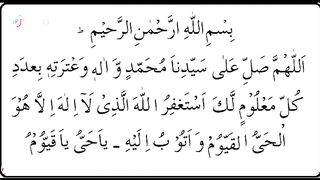 بِسْمِ اللهِ الرَّحْمٰنِ الرَّحِيْمِ ؕ
اَللّٰهُمَّ صَلِّ عَلٰى سَيِّدِنَا مُحَمَّدٍ وَّ اٰلِهٖ وَعِتْرَتِهٖ بِعَدَدِ
كُلِّ مَعْلُوْمٍ لَّكَ اَسْتَغْفِرُ اللهَ الَّذِىْ لَآ اِلٰهَ اِلَّا هُوَ
الْحَىُّ الْقَيُّوْمُ وَ اَتُوْبُ اِلَيْهِ ۔ يَاحَىُّ يَا قَيُّوْمُ